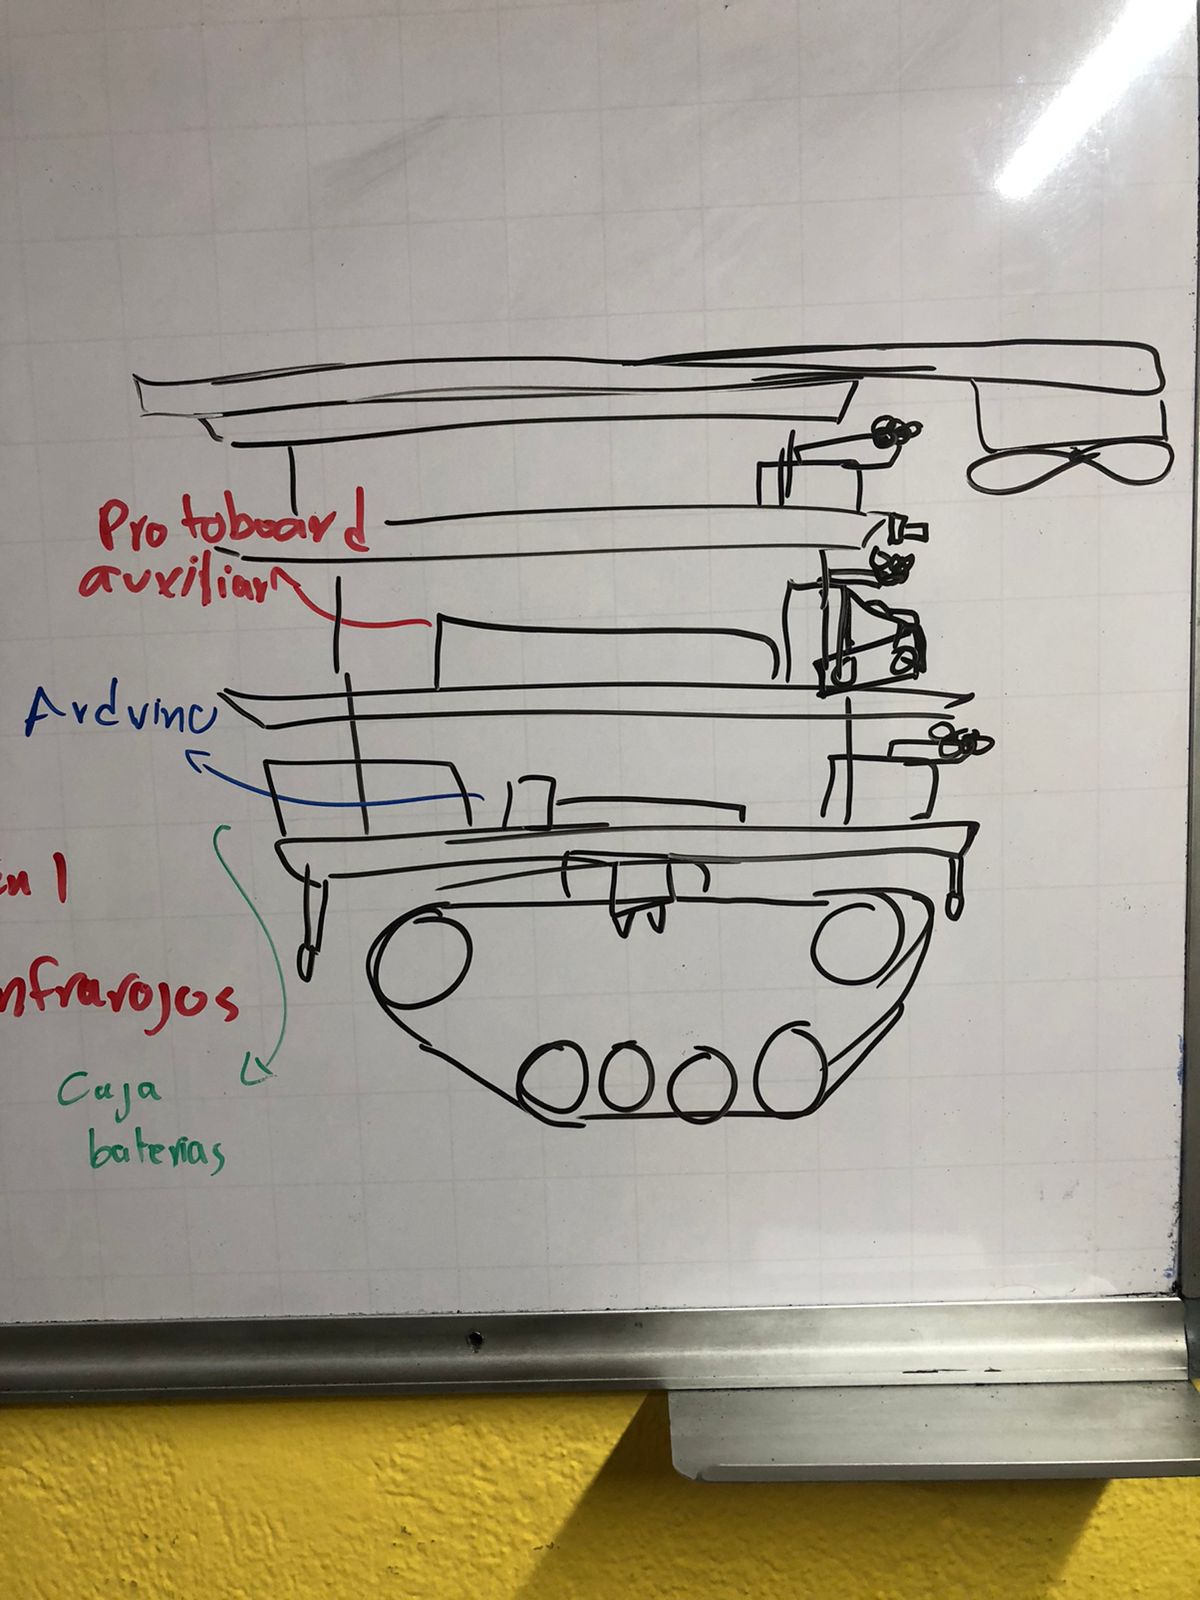 Protoboard
auxiliar
Arduino
en 1
nfrarojos
Caja
baterias